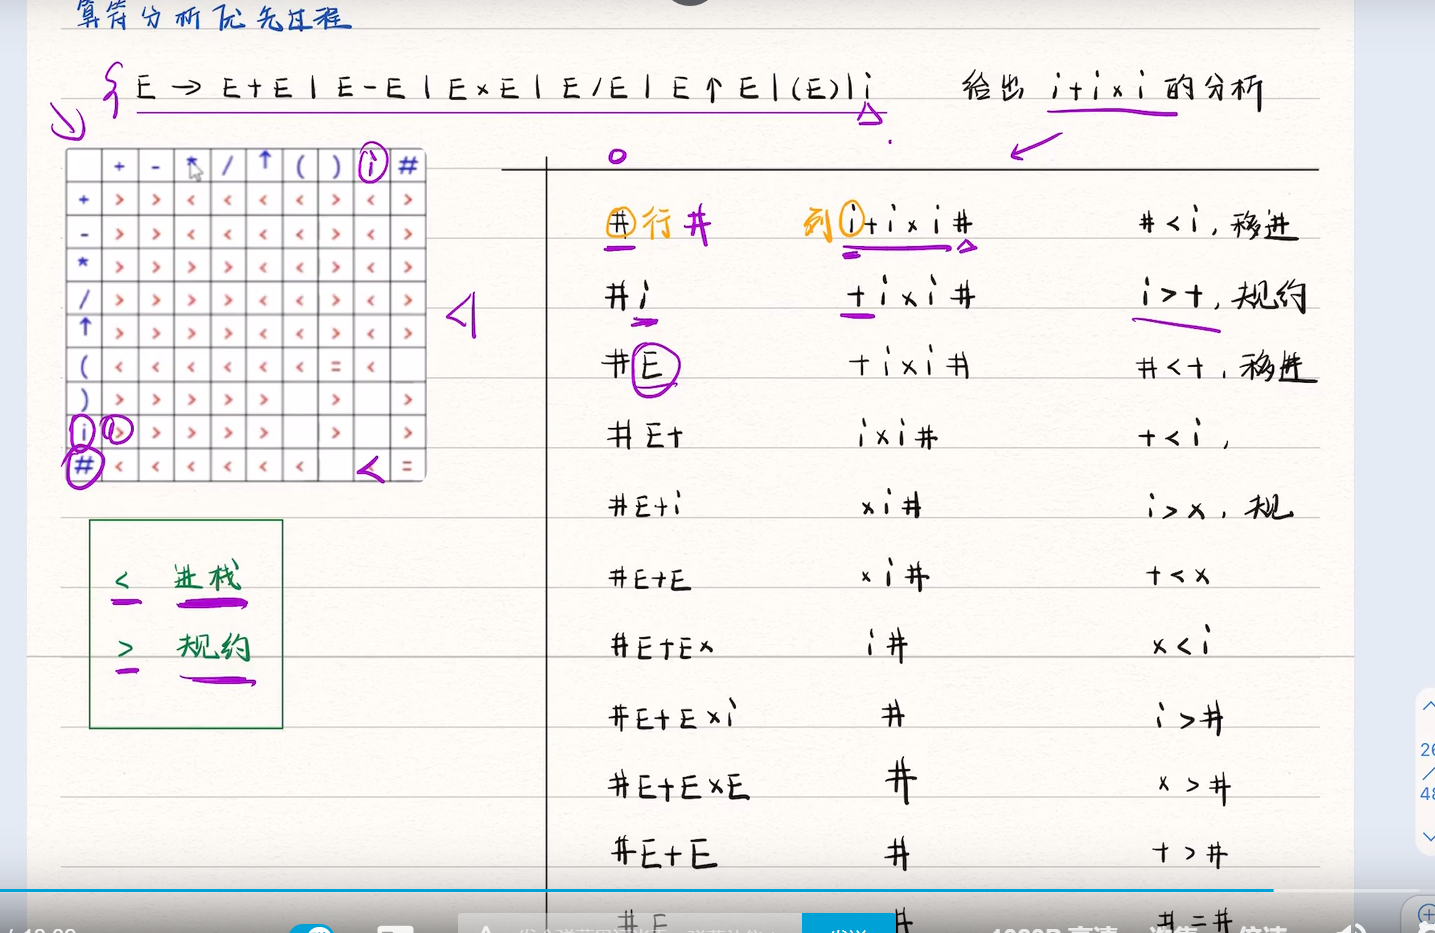 算符分析优先过程
E → E+E | E-E | E×E | E/E | E↑E | (E) | i 给出 i+i×i 的分析
+ - * / ↑ ( ) i #
+ > > < < < < > < >
- > > < < < < > < >
* > > > > < < > < >
/ > > > > < < > < >
↑ > > > > < < > < >
( < < < < < < = <
) > > > > > > >
i > > > > > > >
# < < < < < < < =
< 进栈
> 规约
# 行 # 列 i+i×i# #<i, 移进
#i +i×i# i>+, 规约
#E +i×i# #<+, 移进
#E+ i×i# +<i,
#E+i ×i# i>×, 规
#E+E ×i# +<×
#E+E× i# ×<i
#E+E×i # i>#
#E+E×E # ×>#
#E+E # +>#
#E # #=#
26
/
48